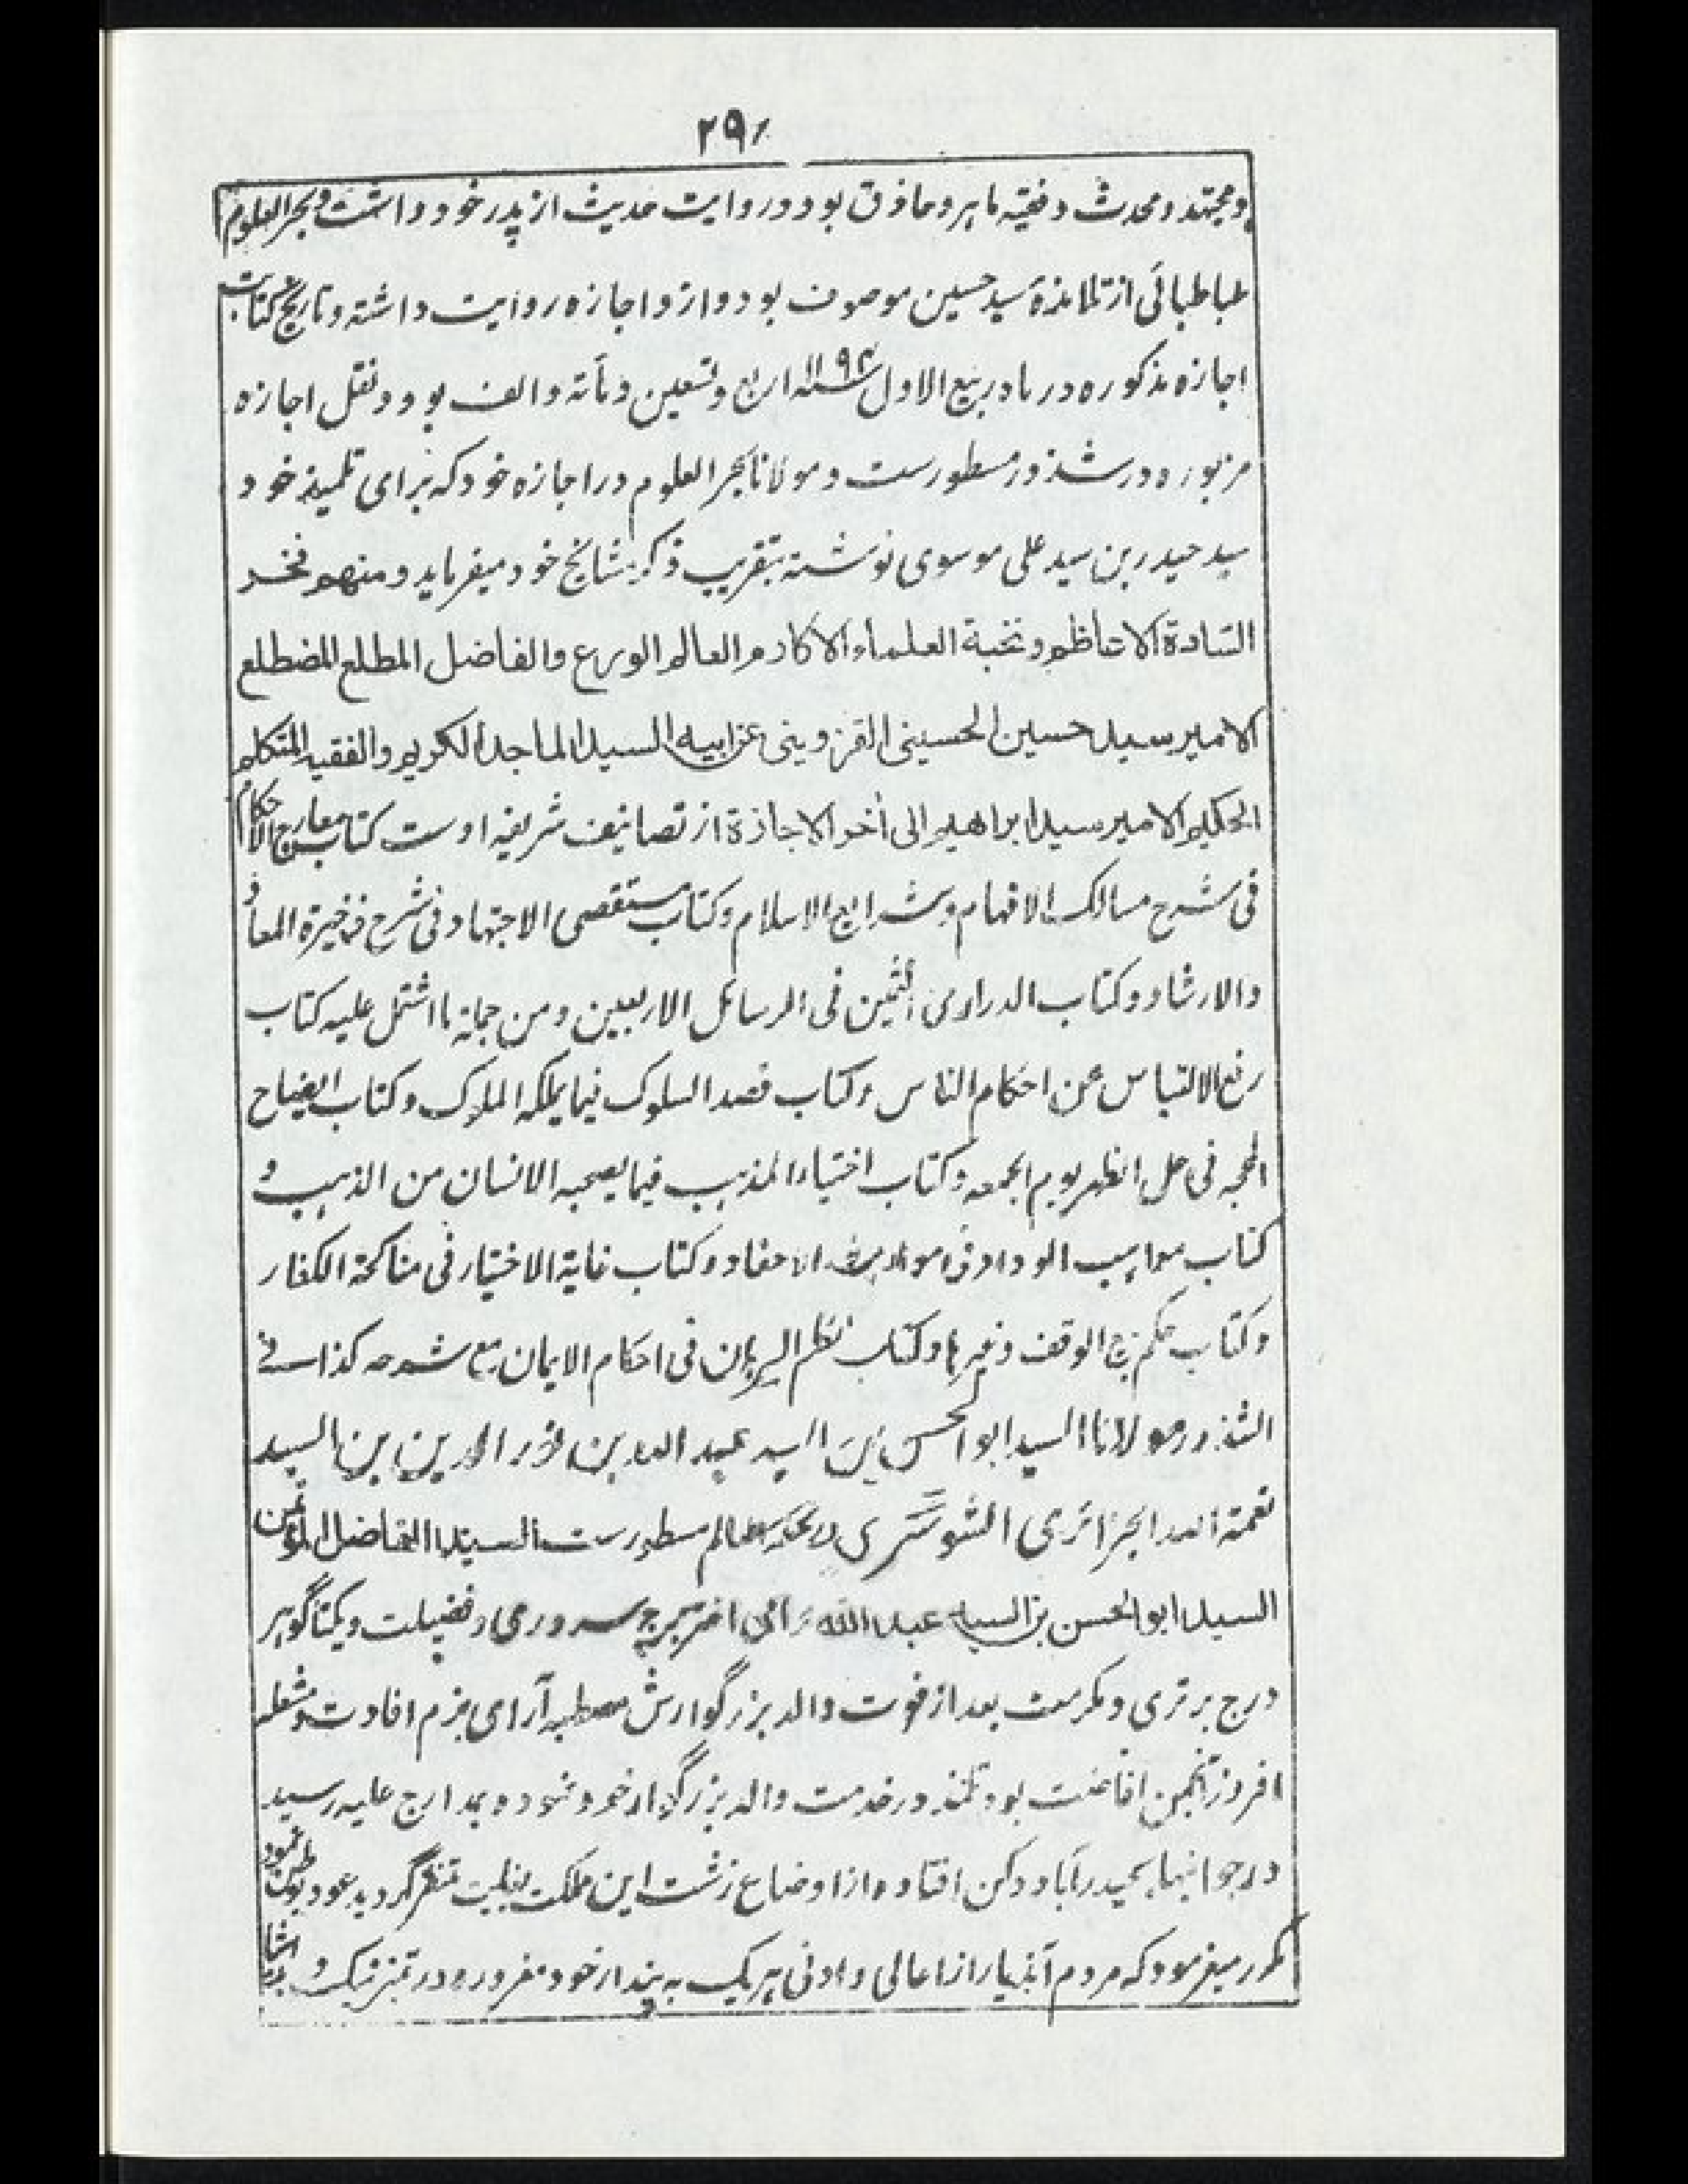 ٢٩٠
و مجتهد و محدث و فقیه ماهر و حاذق بود و روایت حدیث از پدر خود داشت و بحر العلوم
طباطبائی از تلامذهٔ سید حسین موصوف بود و ازو اجازه روایت داشته و تاریخ کتابت
اجازه مذکوره در ماه ربیع الاول سنه ١١٩٤ اربع و تسعین و مأته و الف بود و نقل اجازه
مزبوره در شذور مسطورست و مولانا بحر العلوم در اجازه خود که برای تلمیذ خود
سید حیدر بن سید علی موسوی نوشته بتقریب ذکر مشائخ خود میفرماید و منهم فخر
السادة الاعاظم و نخبة العلماء الاکارم العالم الورع والفاضل المطلع المضطلع
الامیر سید حسین الحسینی القزوینی عن ابیه السید الماجد الکریم والفقیه المتکلم
الحکیم الامیر سید ابراهیم الی أخر الاجازة از تصانیف شریفه اوست کتاب معارج الاحکام
فی شرح مسالک الافهام و شرایع الاسلام و کتاب مستقصی الاجتهاد فی شرح ذخیرة المعاد
والارشاد و کتاب الدراری الثمین فی الرسائل الاربعین و من جملة ما اشتمل علیه کتاب
رفع الالتباس عن احکام الناس و کتاب قصد السلوک فیما یملکه الملوک و کتاب ایضاح
المحجه فی حل الظهر یوم الجمعه و کتاب اختیار المذهب فیما یصحبه الانسان من الذهب و
کتاب مواهب الوداد فی مواریث الاحفاد و کتاب غایة الاختیار فی مناکحة الکفار
و کتاب حکم بیع الوقف و غیرها و کتاب نظم البرهان فی احکام الایمان مع شرحه کذا فی
الشذور مولانا السید ابو الحسن بن السید عبد الله بن نور الدین بن السید
نعمة الله الجزائری الشوشتری در تحفة العالم مسطورست السید الفاضل المؤتمن
السید ابو الحسن بن السید عبد الله اختر برج سروری و فضیلت و یکتا گوهر
درج برتری و مکرمت بعد از فوت والد بزرگوارش مصطبه آرای بزم افادت و مشعله
افروز انجمن افاضت بود تلمذ در خدمت والد بزرگوار خود نموده بمدارج علیه رسید
در جوانیها بحیدرآباد دکن افتاده از اوضاع زشت این مملکت بغایت متنفر گردید عود بوطن نمود
مکرر میفرمود که مردم آندیار از اعالی و ادنی هر یک به پندار خود مغرور و در تمیز نیک و بد